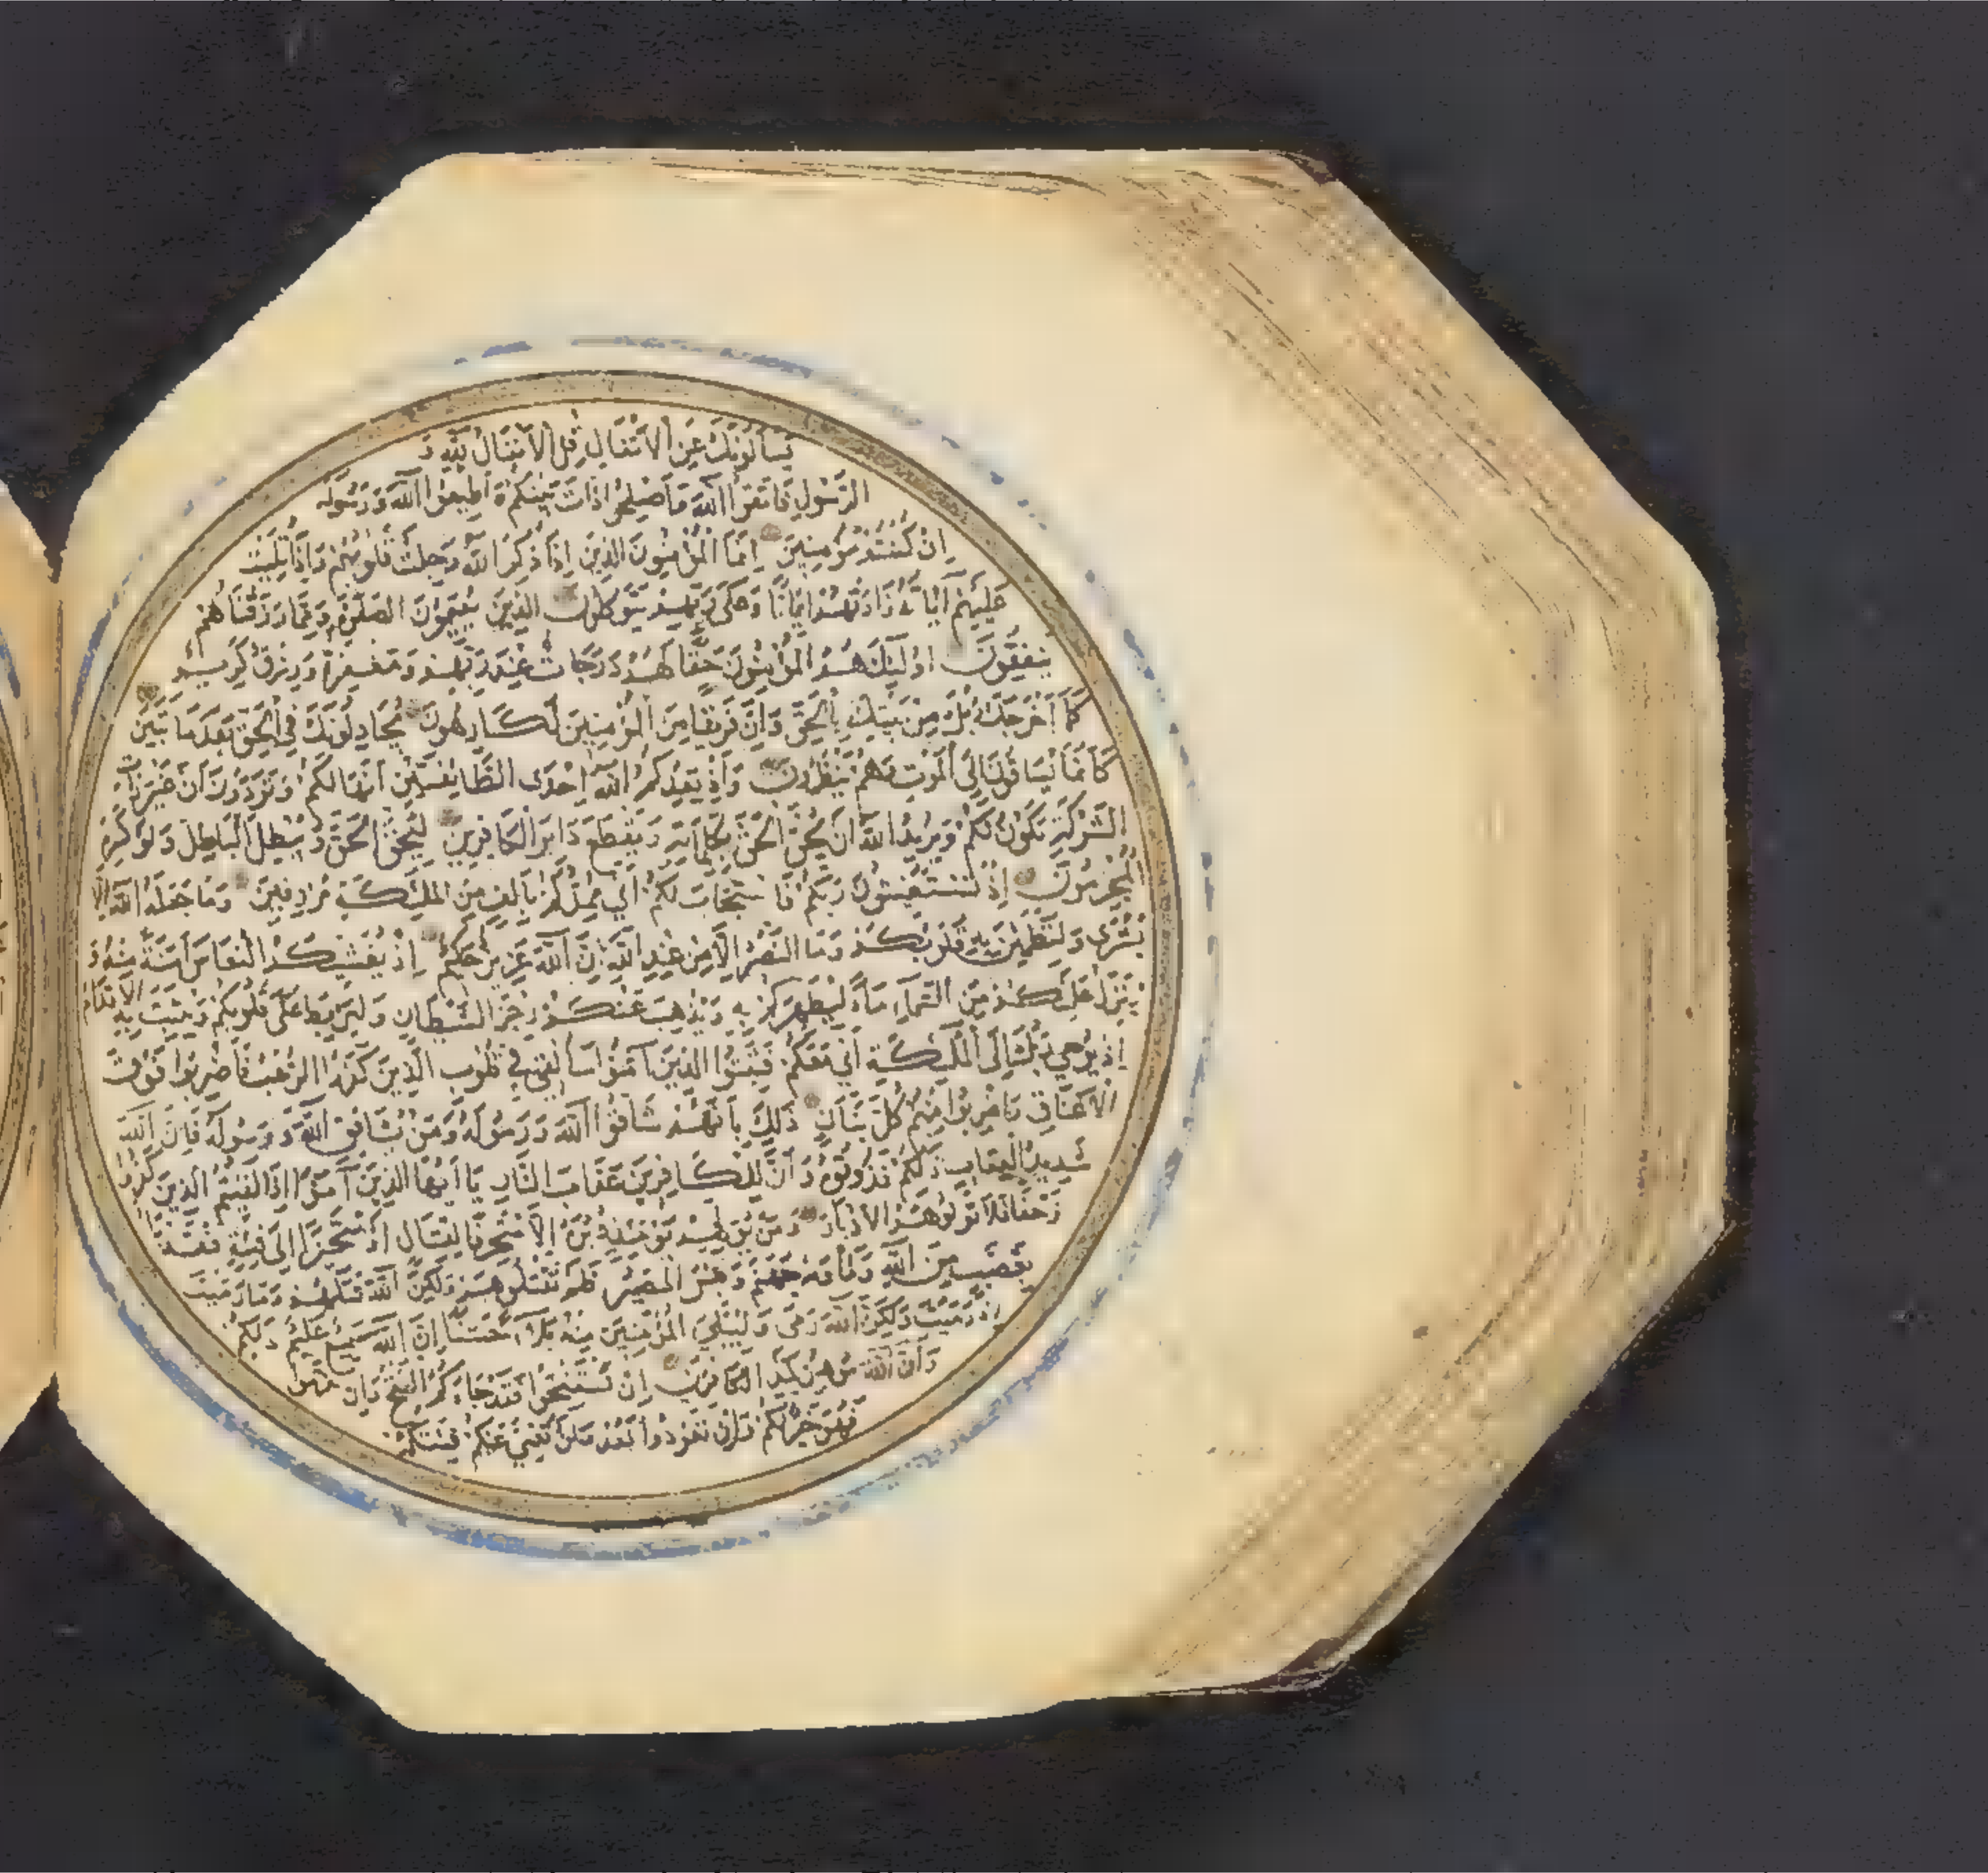 يَسْأَلُونَكَ عَنِ الْأَنْفَالِ قُلِ الْأَنْفَالُ لِلَّهِ وَ
الرَّسُولِ فَاتَّقُوا اللَّهَ وَأَصْلِحُوا ذَاتَ بَيْنِكُمْ وَأَطِيعُوا اللَّهَ وَرَسُولَهُ
إِنْ كُنْتُمْ مُؤْمِنِينَ إِنَّمَا الْمُؤْمِنُونَ الَّذِينَ إِذَا ذُكِرَ اللَّهُ وَجِلَتْ قُلُوبُهُمْ وَإِذَا تُلِيَتْ
عَلَيْهِمْ آيَاتُهُ زَادَتْهُمْ إِيمَانًا وَعَلَى رَبِّهِمْ يَتَوَكَّلُونَ الَّذِينَ يُقِيمُونَ الصَّلٰوةَ وَمِمَّا رَزَقْنَاهُمْ
يُنْفِقُونَ أُولَٰئِكَ هُمُ الْمُؤْمِنُونَ حَقًّا لَهُمْ دَرَجَاتٌ عِنْدَ رَبِّهِمْ وَمَغْفِرَةٌ وَرِزْقٌ كَرِيمٌ
كَمَا أَخْرَجَكَ رَبُّكَ مِنْ بَيْتِكَ بِالْحَقِّ وَإِنَّ فَرِيقًا مِنَ الْمُؤْمِنِينَ لَكَارِهُونَ يُجَادِلُونَكَ فِي الْحَقِّ بَعْدَ مَا تَبَيَّنَ
كَأَنَّمَا يُسَاقُونَ إِلَى الْمَوْتِ وَهُمْ يَنْظُرُونَ وَإِذْ يَعِدُكُمُ اللَّهُ إِحْدَى الطَّائِفَتَيْنِ أَنَّهَا لَكُمْ وَتَوَدُّونَ أَنَّ غَيْرَ ذَاتِ
الشَّوْكَةِ تَكُونُ لَكُمْ وَيُرِيدُ اللَّهُ أَنْ يُحِقَّ الْحَقَّ بِكَلِمَاتِهِ وَيَقْطَعَ دَابِرَ الْكَافِرِينَ لِيُحِقَّ الْحَقَّ وَيُبْطِلَ الْبَاطِلَ وَلَوْ كَرِهَ
الْمُجْرِمُونَ إِذْ تَسْتَغِيثُونَ رَبَّكُمْ فَاسْتَجَابَ لَكُمْ أَنِّي مُمِدُّكُمْ بِأَلْفٍ مِنَ الْمَلٰئِكَةِ مُرْدِفِينَ وَمَا جَعَلَهُ اللَّهُ إِلَّا
بُشْرَى وَلِتَطْمَئِنَّ بِهِ قُلُوبُكُمْ وَمَا النَّصْرُ إِلَّا مِنْ عِنْدِ اللَّهِ إِنَّ اللَّهَ عَزِيزٌ حَكِيمٌ إِذْ يُغَشِّيكُمُ النُّعَاسَ أَمَنَةً مِنْهُ وَ
يُنَزِّلُ عَلَيْكُمْ مِنَ السَّمَاءِ مَاءً لِيُطَهِّرَكُمْ بِهِ وَيُذْهِبَ عَنْكُمْ رِجْزَ الشَّيْطَانِ وَلِيَرْبِطَ عَلَى قُلُوبِكُمْ وَيُثَبِّتَ بِهِ الْأَقْدَامَ
إِذْ يُوحِي رَبُّكَ إِلَى الْمَلٰئِكَةِ أَنِّي مَعَكُمْ فَثَبِّتُوا الَّذِينَ آمَنُوا سَأُلْقِي فِي قُلُوبِ الَّذِينَ كَفَرُوا الرُّعْبَ فَاضْرِبُوا فَوْقَ
الْأَعْنَاقِ وَاضْرِبُوا مِنْهُمْ كُلَّ بَنَانٍ ذَلِكَ بِأَنَّهُمْ شَاقُّوا اللَّهَ وَرَسُولَهُ وَمَنْ يُشَاقِقِ اللَّهَ وَرَسُولَهُ فَإِنَّ اللَّهَ
شَدِيدُ الْعِقَابِ ذَلِكُمْ فَذُوقُوهُ وَأَنَّ لِلْكَافِرِينَ عَذَابَ النَّارِ يَا أَيُّهَا الَّذِينَ آمَنُوا إِذَا لَقِيتُمُ الَّذِينَ كَفَرُوا
زَحْفًا فَلَا تُوَلُّوهُمُ الْأَدْبَارَ وَمَنْ يُوَلِّهِمْ يَوْمَئِذٍ دُبُرَهُ إِلَّا مُتَحَرِّفًا لِقِتَالٍ أَوْ مُتَحَيِّزًا إِلَى فِئَةٍ فَقَدْ بَاءَ
بِغَضَبٍ مِنَ اللَّهِ وَمَأْوٰيهُ جَهَنَّمُ وَبِئْسَ الْمَصِيرُ فَلَمْ تَقْتُلُوهُمْ وَلَكِنَّ اللَّهَ قَتَلَهُمْ وَمَا رَمَيْتَ
إِذْ رَمَيْتَ وَلَكِنَّ اللَّهَ رَمَى وَلِيُبْلِيَ الْمُؤْمِنِينَ مِنْهُ بَلَاءً حَسَنًا إِنَّ اللَّهَ سَمِيعٌ عَلِيمٌ ذَلِكُمْ
وَأَنَّ اللَّهَ مُوهِنُ كَيْدِ الْكَافِرِينَ إِنْ تَسْتَفْتِحُوا فَقَدْ جَاءَكُمُ الْفَتْحُ وَإِنْ تَنْتَهُوا
فَهُوَ خَيْرٌ لَكُمْ وَإِنْ تَعُودُوا نَعُدْ وَلَنْ تُغْنِيَ عَنْكُمْ فِئَتُكُمْ